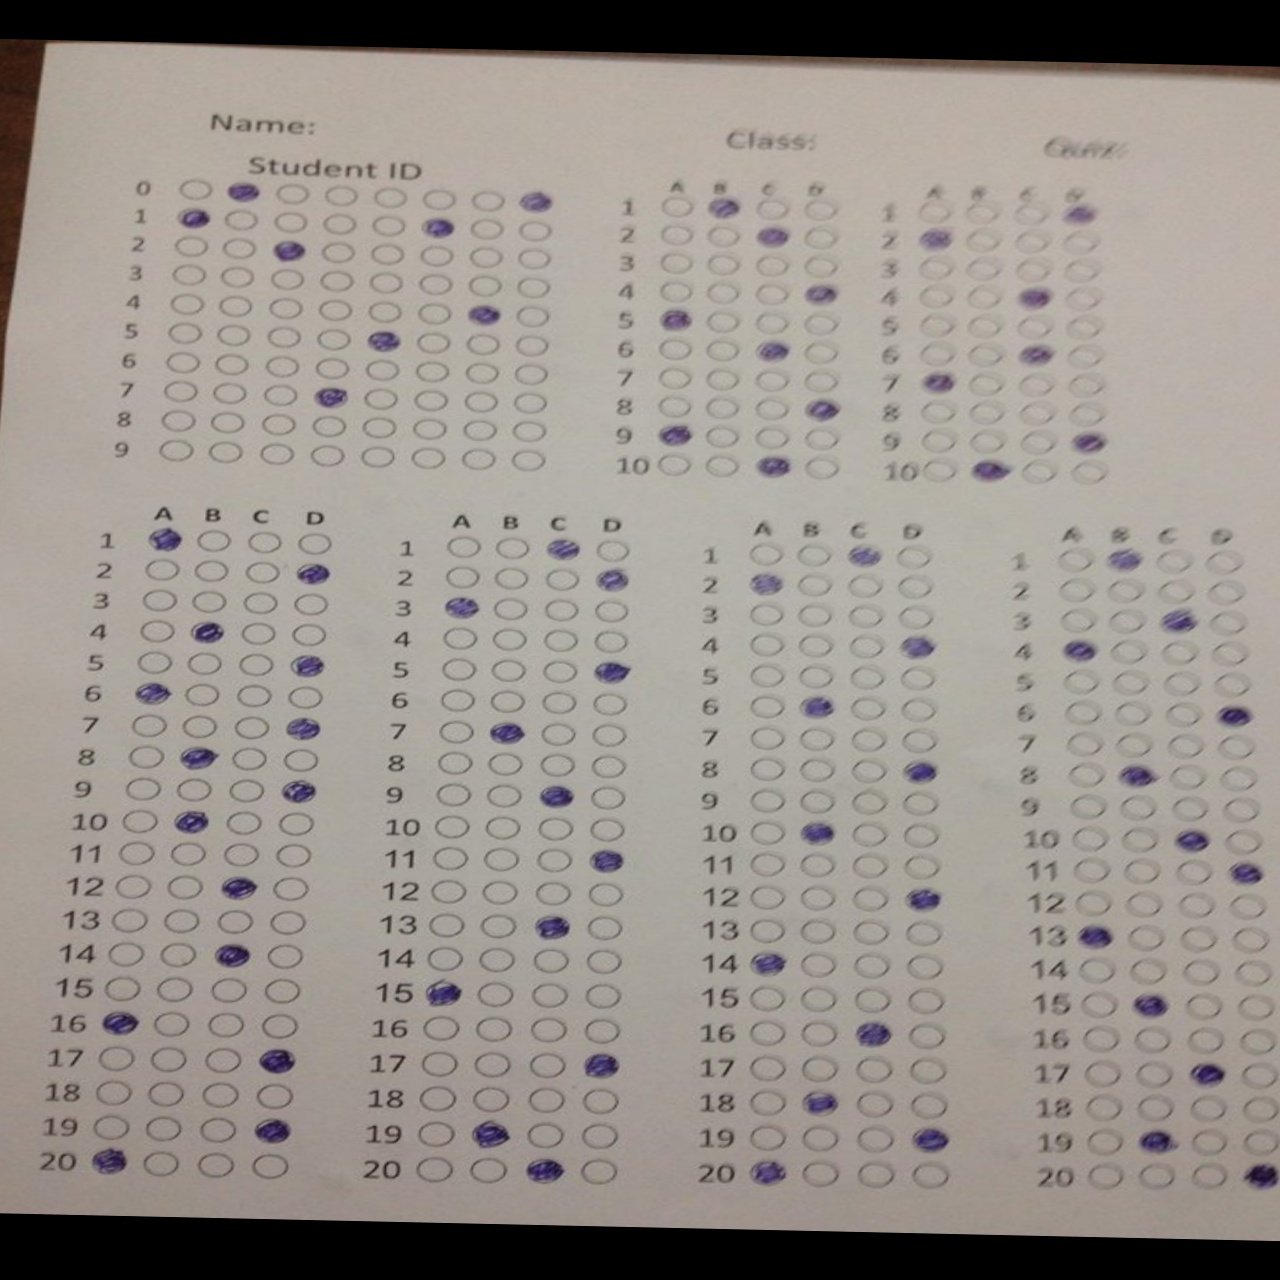 Name:
Class:
Student ID
0
1
2
3
4
5
6
7
8
9
A B C D
1
2
3
4
5
6
7
8
9
10
A B C D
1
2
3
4
5
6
7
8
9
10
A B C D
1
2
3
4
5
6
7
8
9
10
11
12
13
14
15
16
17
18
19
20
A B C D
1
2
3
4
5
6
7
8
9
10
11
12
13
14
15
16
17
18
19
20
A B C D
1
2
3
4
5
6
7
8
9
10
11
12
13
14
15
16
17
18
19
20
A B C D
1
2
3
4
5
6
7
8
9
10
11
12
13
14
15
16
17
18
19
20